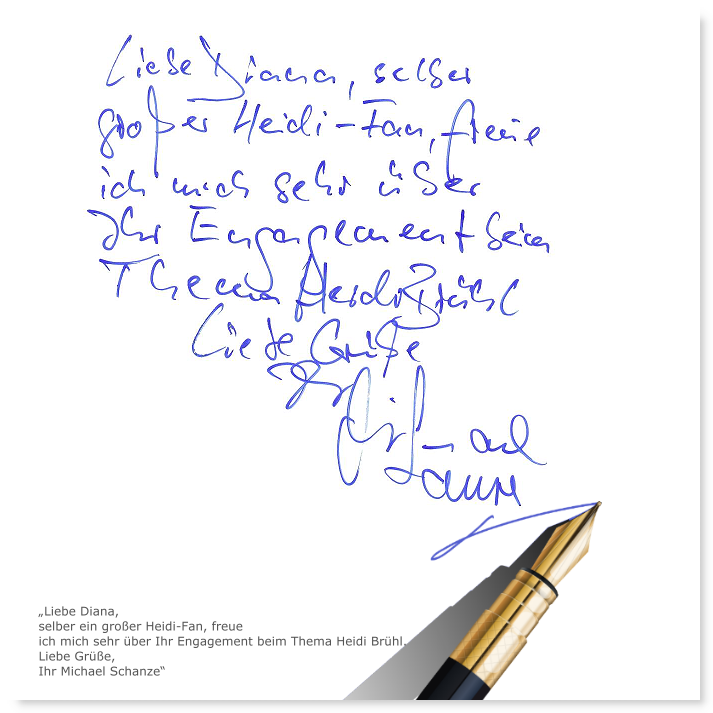 Liebe Diana, selber
großer Heidi-Fan, freue
ich mich sehr über
Ihr Engagement beim
Thema Heidi Brühl
Liebe Grüße
Ihr
Michael
Schanze
„Liebe Diana,
selber ein großer Heidi-Fan, freue
ich mich sehr über Ihr Engagement beim Thema Heidi Brühl.
Liebe Grüße,
Ihr Michael Schanze“